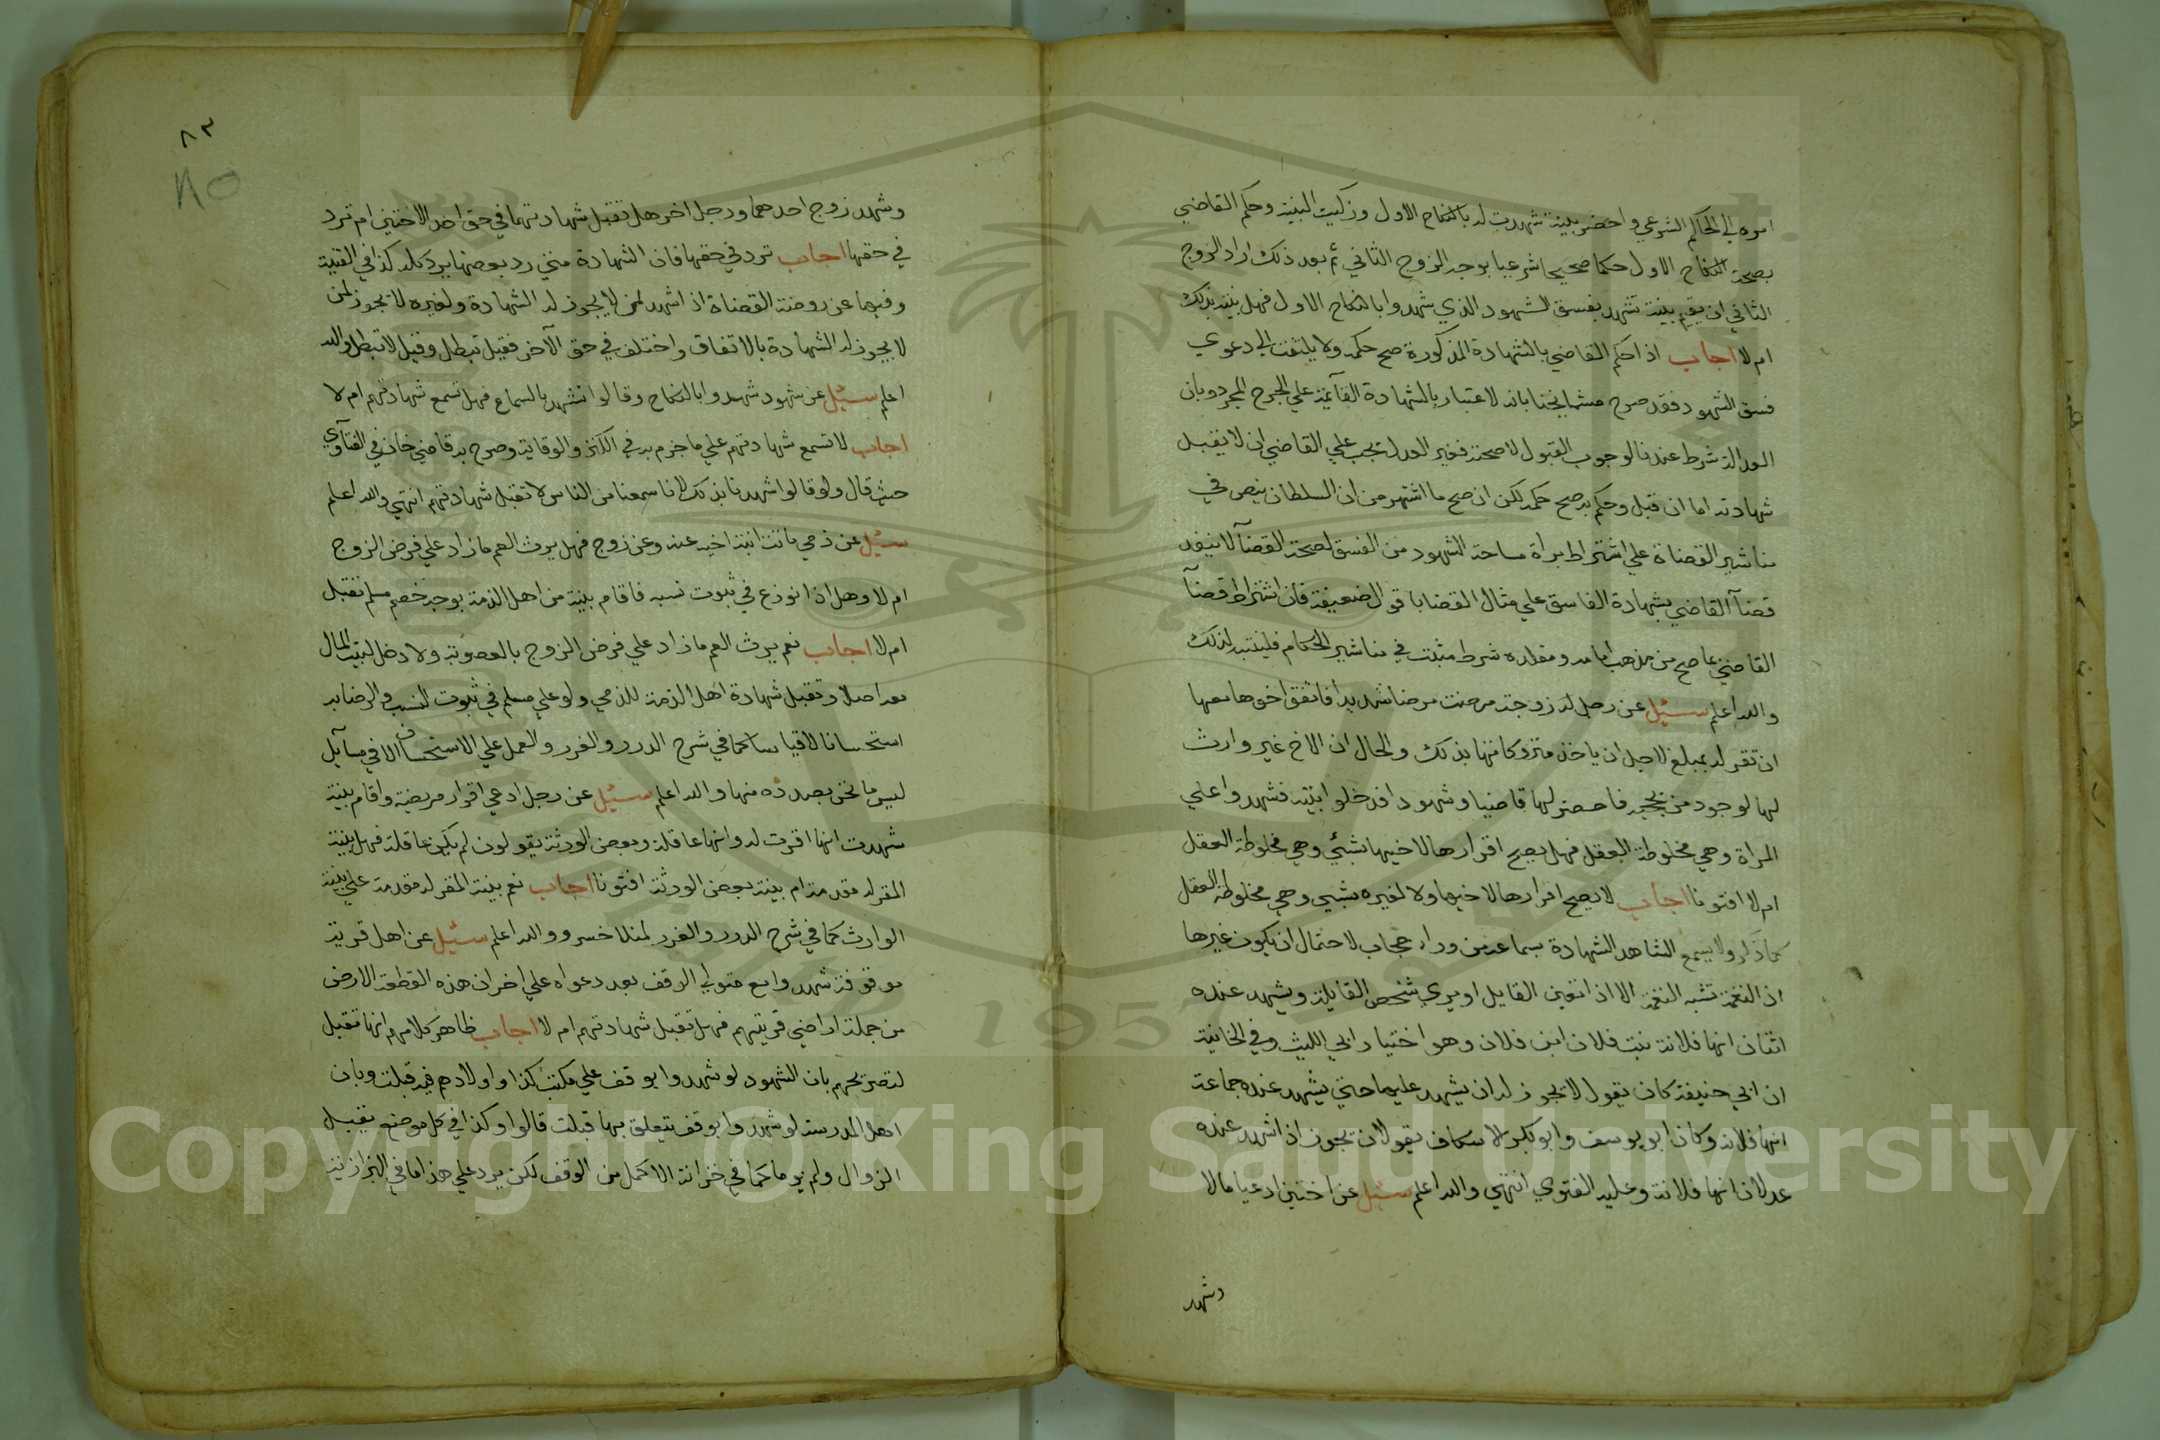 امره الي الحاكم الشرعي واحضر بينة شهدت له بالنكاح الاول وزكيت البينة وحكم القاضي
بصحة النكاح الاول حكما صحيحا شرعيا بوجه الزوج الثاني ثم بعد ذلك اراد الزوج
الثاني ان يقيم بينة تشهد بفسق الشهود الذي شهدوا بالنكاح الاول فهل بينته بذلك
ام لا اجاب اذا حكم القاضي بالشهادة المذكورة صح حكمه ولا يلتفت الي دعوي
فسق الشهود فقد صرح مشايخنا بانه لا عتبار بالشهادة القائمة علي الجرح المجرد وبان
العدالة شرط عندنا لوجوب القبول لا صحته فغير العدل يجب علي القاضي ان لا يقبل
شهادته اما ان قبل وحكم به صح حكمه لكن ان صح ما اشتهر من ان السلطان ينص في
مناشير القضاة علي اشتراط براة ساحة الشهود من الفسق لصحة القضآ لا ينفذ
قضآ القاضي بشهادة الفاسق علي مثال القضا باقوال ضعيفة فان اشتراط قضآ
القاضي بما صح من مذهب امامه ومقلده شرط مثبت في مناشير الحكام فليتنبه لذلك
والله اعلم سئيل عن رجل له زوجة مرضت مرضا شديدا فاتفق اخوها معها
ان تقر له بمبلغ لاجل ان ياخذ متروكاتها بذلك والحال ان الاخ غير وارث
لها لوجود من يحجبه فاحضر لها قاضيا وشهودا فدخلوا بيته فشهدوا علي
المراة وهي مخلوطة العقل فهل يصح اقرارها لاخيها بشئي وهي مخلوطة العقل
ام لا افتونا اجاب لا يصح اقرارها لا خيها ولا لغيره بشيي وهي مخلوطة العقل
كما ذكر ولا يسع الشاهد الشهادة بسماعه من ورا حجاب لاحتمال ان يكون غيرها
اذ النغمة تشبه النغمة الا اذا تعين القايل او يري شخص القايلة ويشهد عنده
اثنان انها فلانة بنت فلان ابن فلان وهو اختيار ابي الليث وفي الخانية
ان ابي حنيفة كان يقول لا يجوز له ان يشهد عليها حتي يشهد عنده جماعة
انها فلانة وكان ابو يوسف وابو بكر الاسكاف يقولان يجوز اذا شهد عنده
عدلان انها فلانة وعليه الفتوي انتهي والله اعلم سئيل عن اختين ادعيا مالا
وشهد
٨٣
٨٥
وشهد زوج احدهما ورجل اخر هل تقبل شهادتهما في حق اخر الاختين ام ترد
في حقها اجاب ترد في حقها فان الشهادة متي رد بعضها يرد كله كذا في القنية
وفيها عن روضة القضاة اذا شهد لمن لا يجوز له الشهادة ولغيره لا يجوز لمن
لا يجوز له الشهادة بالاتفاق واختلف في حق الآخر فقيل تبطل وقيل لا تبطل والله
اعلم سئيل عن شهود شهدوا بالنكاح وقالوا نشهد بالسماع فهل تسمع شهادتهم ام لا
اجاب لا تسمع شهادتهم علي ما جزم به في الكنز والوقاية وصرح به قاضي خان في الفتآوي
حيث قال ولو قالوا شهدنا بذلك لانا سمعنا من الناس لا تقبل شهادتهم انتهي والله اعلم
سئيل عن ذمي ماتت ابنة اخيه عنه وعن زوج فهل يرث العم ما زاد علي فرض الزوج
ام لا وهل اذا نوزع في ثبوت نسبه فاقام بينة من اهل الذمة بوجه خصم مسلم تقبل
ام لا اجاب نعم يرث العم ما زاد علي فرض الزوج بالعصوبة ولا دخل لبيت المال
معه اصلا وتقبل شهادة اهل الذمة للذمي ولو علي مسلم في ثبوت النسب والوصاية
استحسانا لا قياسا كما في شرح الدرر والغرر والعمل علي الاستحسان الا في مسآيل
ليس ما نحن بصدده منها والله اعلم سئيل عن رجل ادعي اقرار مريضة واقام بينة
شهدت انها اقرت له وانها عاقلة وبعض الورثة يقولون لم يكن عاقلة فهل بينة
المقر له مقدمة ام بينة بعض الورثة افتونا اجاب نعم بينة المقر له مقدمة علي بينة
الوارث كما في شرح الدرر والغرر لمنلا خسرو والله اعلم سئيل عن اهل قرية
موقوفة شهدوا مع متولي الوقف بعد دعواه علي اخر ان هذه القطعة الارض
من جملة اراضي قريتهم فهل تقبل شهادتهم ام لا اجاب ظاهر كلامهم انها تقبل
لتصريحهم بان الشهود لو شهدوا بوقف علي مكتب كذا واولادهم فيه قبلت وبان
اهل المدرسة لو شهدوا بوقف يتعلق بها قبلت قالوا وكذا في كل موضع يقبل
الزوال ولم يدم كما في خزانة الاكمل من الوقف لكن يرد علي هذا ما في البزازية
1957
Copyright © King Saud University